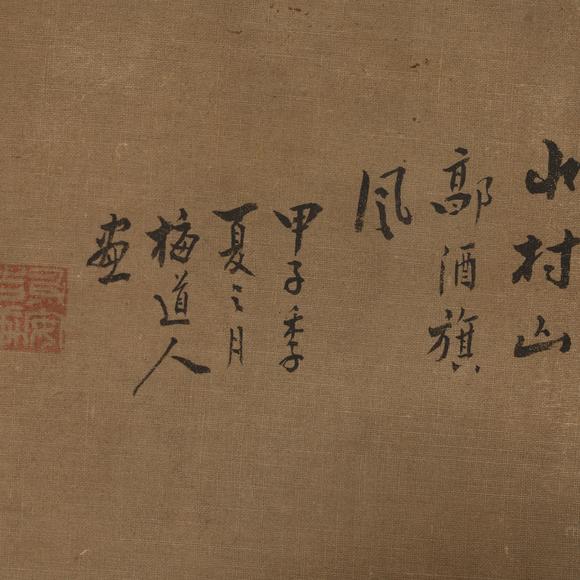 水村山
郭酒旗
風
甲子季
夏之月
梅道人
畫